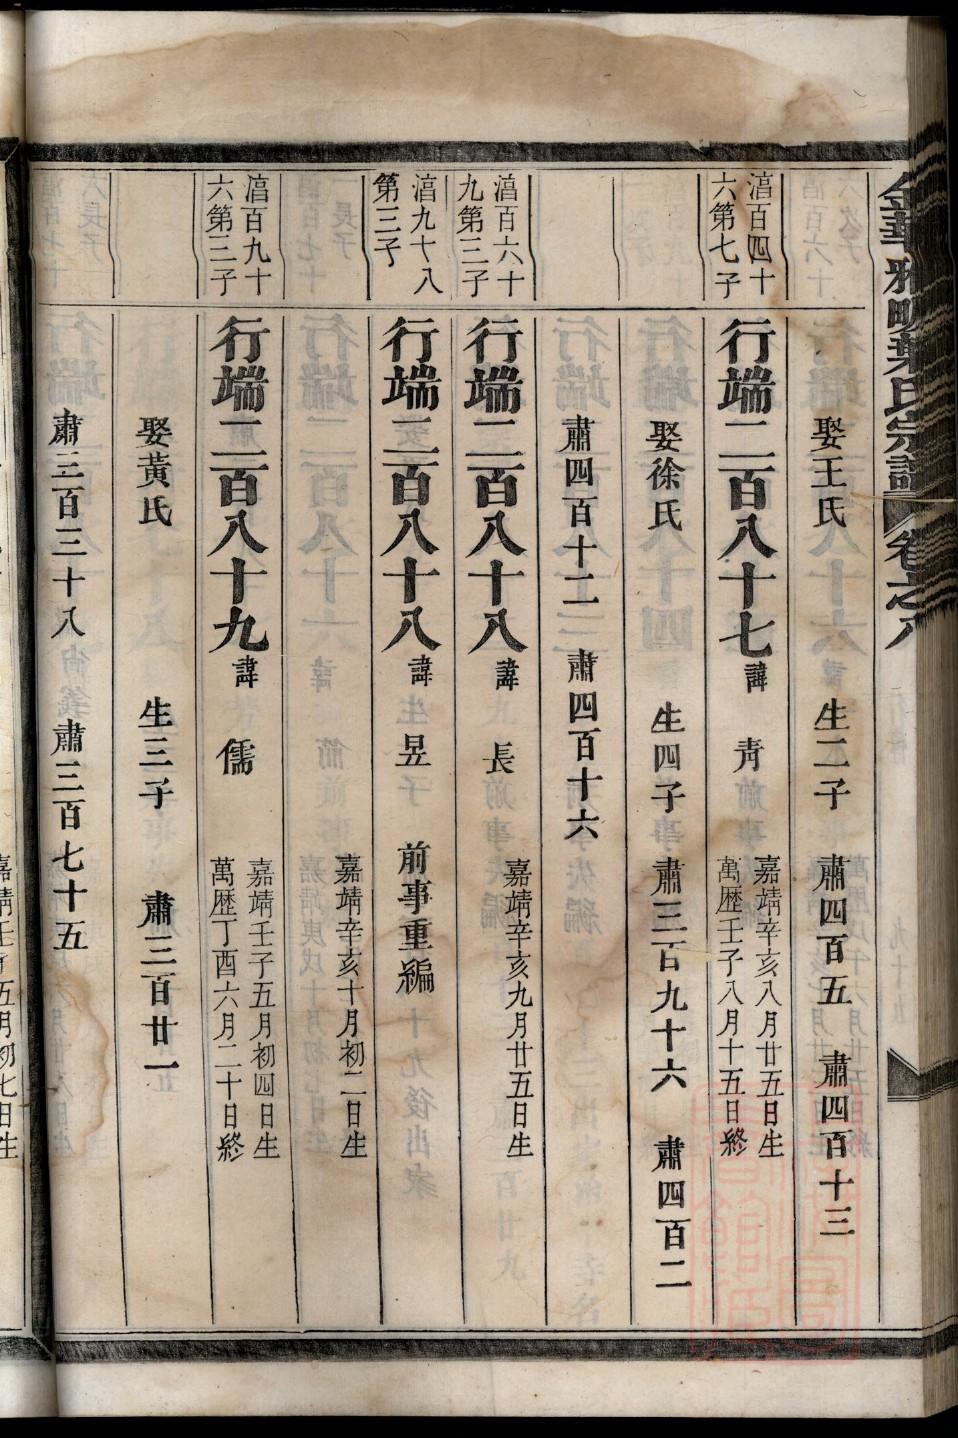 金華雅畈葉氏宗譜 卷之八
娶王氏 生二子 肅四百五 肅四百十三
湻百四十
六第七子
行端二百八十七 諱 靑
嘉靖辛亥八月廿五日生
萬歷壬子八月十五日終
娶徐氏 生四子 肅三百九十六 肅四百二
肅四百十二 肅四百十六
湻百六十
九第三子
行端二百八十八 諱 長
嘉靖辛亥九月廿五日生
湻九十八
第三子
行端二百八十八 諱 昱 前事重編
嘉靖辛亥十月初二日生
湻百九十
六第三子
行端二百八十九 諱 儒
嘉靖壬子五月初四日生
萬歷丁酉六月二十日終
娶黃氏 生三子 肅三百廿一
肅三百三十八 肅三百七十五